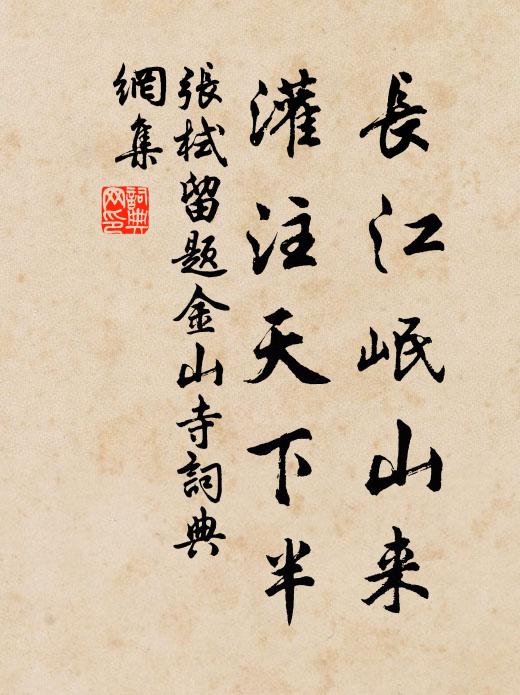 長江岷山来
灌注天下半
張栻留题金山寺詞典
網集
詞典
网印